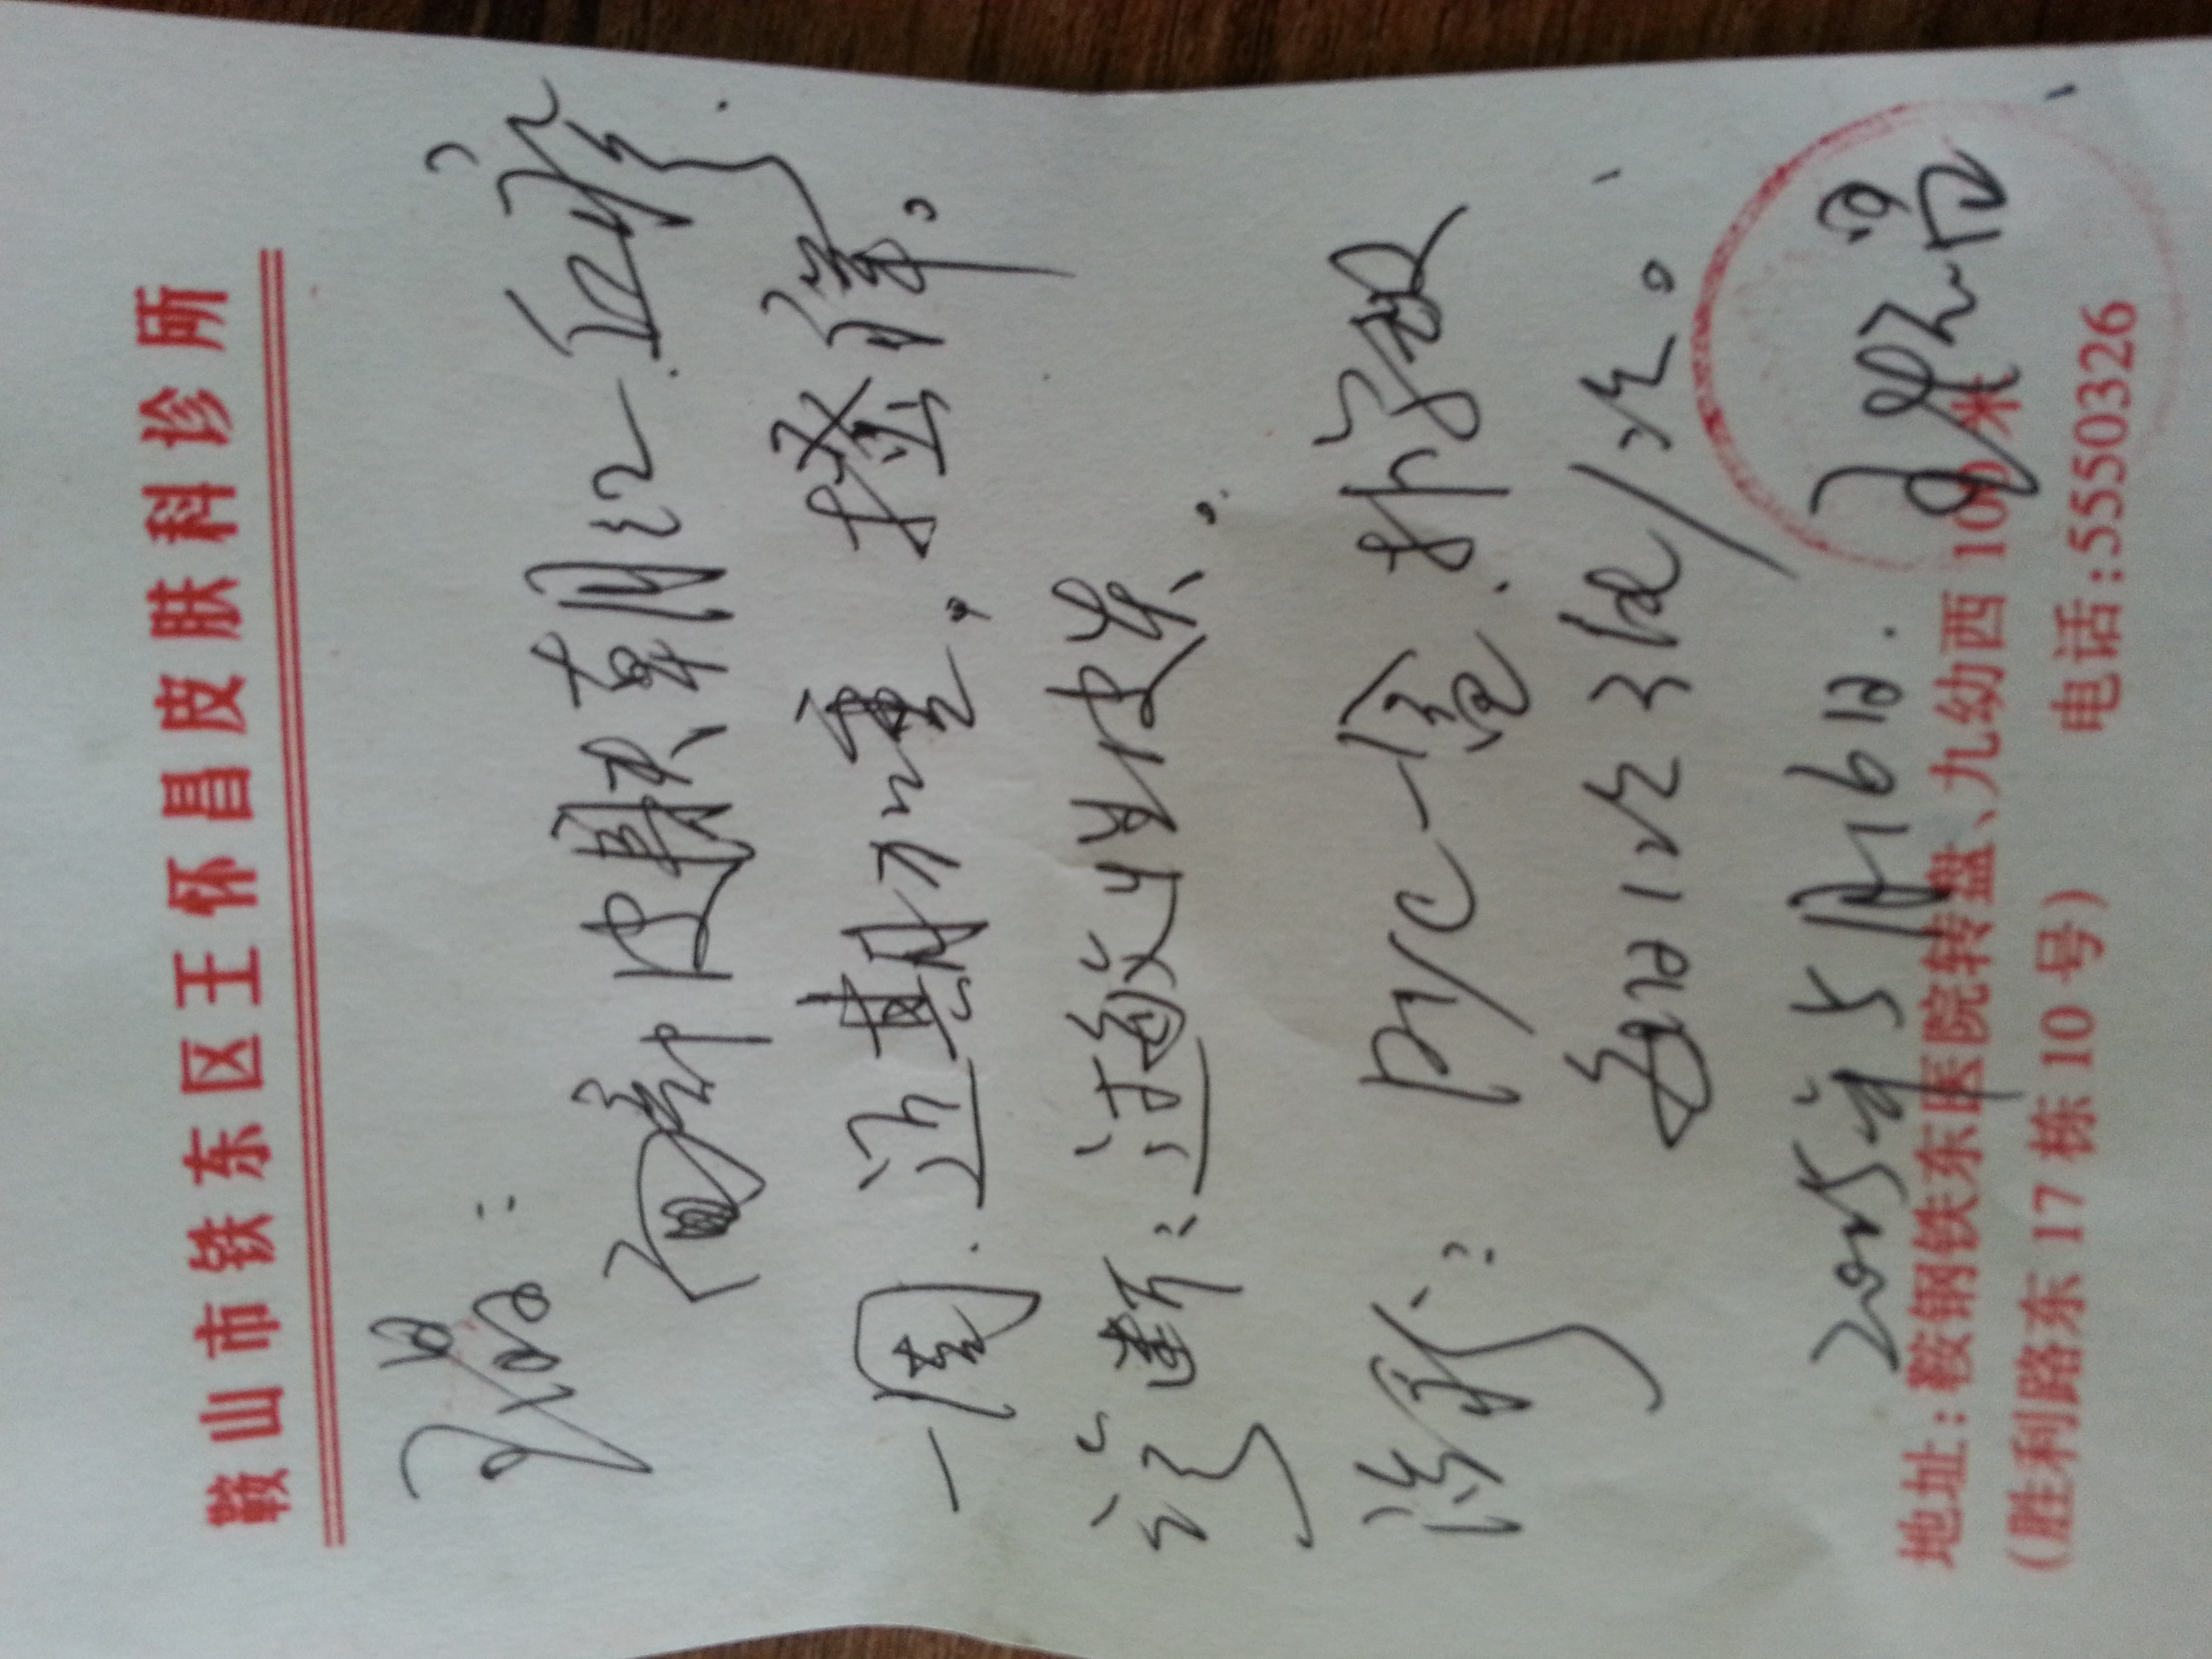 鞍山市铁东区王怀昌皮肤科诊所
王晶：
面部皮肤朝红、丘疹、
一周、近期加重。搔痒。
诊断：过敏性皮炎。
治疗： 一盒、扑尔敏
每日1次3砘/次。
2015年5月16日. 王怀昌
地址：鞍钢铁东医院转盘、九幼西 100 米
（胜利路东 17 栋 10 号） 电话：5550326